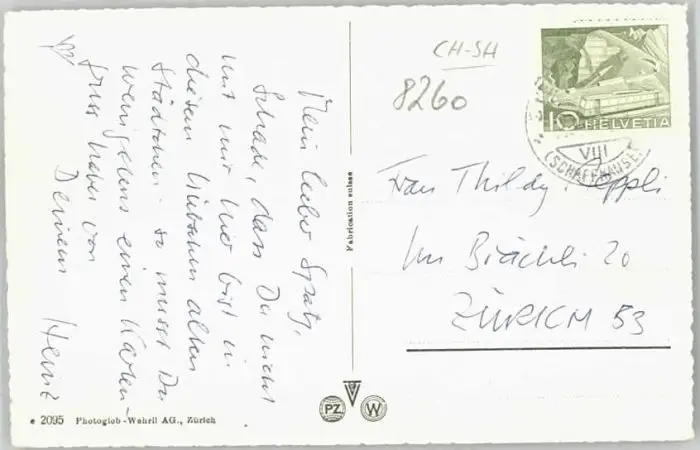 Mein lieber Spatz,
Schade, dass Du nicht
mit mir hier bist in
diesem hübschen alten
Städtchen. So musst Du
wenigstens einen Karten
gruss haben von
Deinem Heinz
CH-SH
8260
10 HELVETIA
VIII
(SCHAFFHAUSEN)
Frau Thildy
Im 20
ZÜRICH 53
Fabrication suisse
PZ W
e 2095 Photoglob-Wehrli AG., Zürich